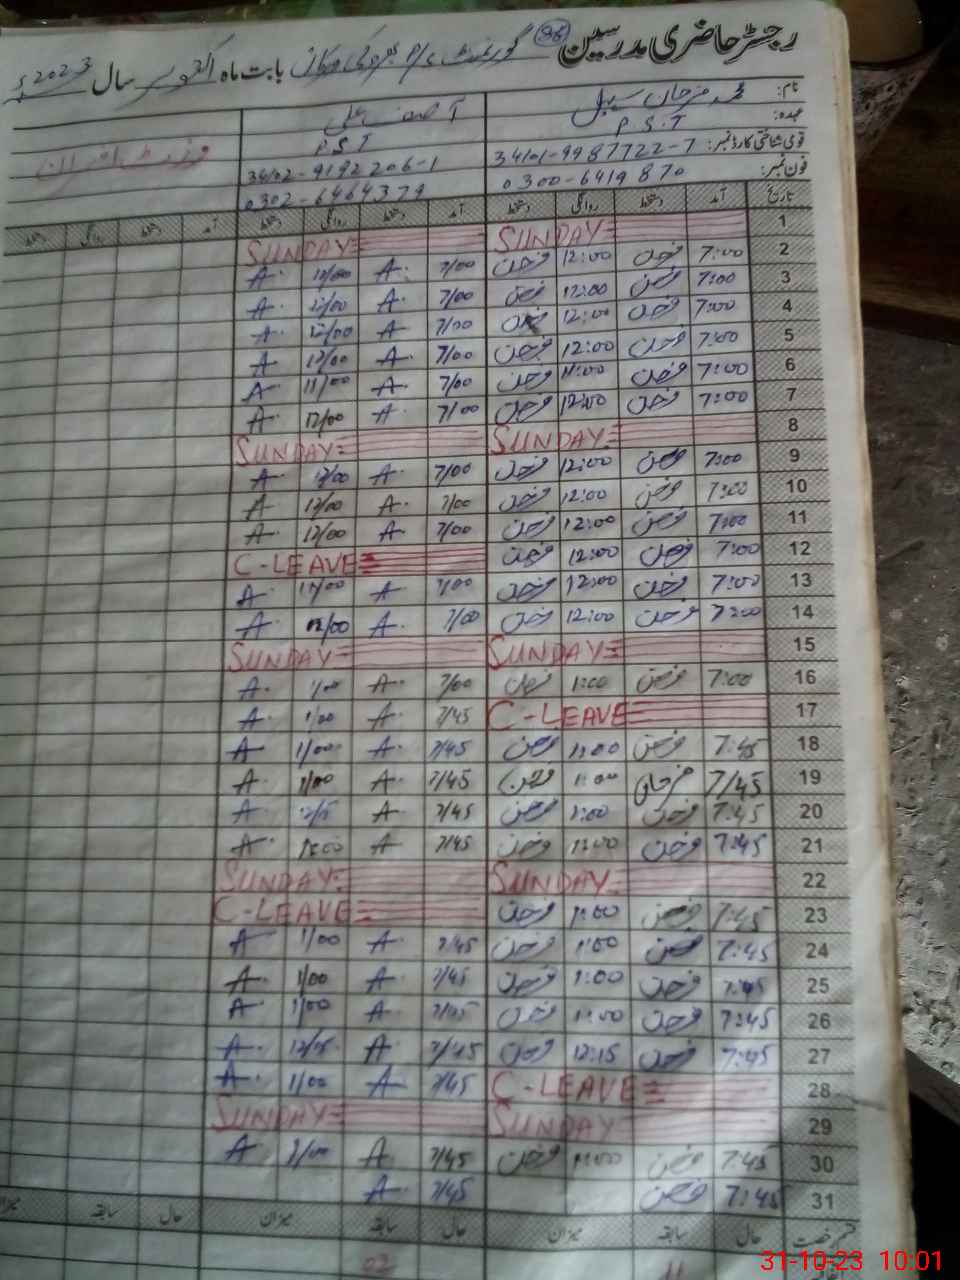 رجسٹر حاضری مدرسین 96 گورنمنٹ بابت ماہ اکتوبر سال 2023ء
نام: محمد فرحان سہیل آصف علی
عہدہ: P.S.T P.S.T
قومی شناختی کارڈ نمبر: 34101-9987722-7 34102-9192206-1
فون نمبر: 0300-6419870 0302-6464379
تاریخ آمد دستخط روانگی دستخط آمد دستخط روانگی دستخط آمد دستخط روانگی دستخط
1 SUNDAY SUNDAY
2 7:00 فرحان 12:00 فرحان 7/00 A. 12/00 A.
3 7:00 فرحان 12:00 فرحان 7/00 A. 12/00 A.
4 7:00 فرحان 12:00 فرحان 7/00 A. 12/00 A.
5 7:00 فرحان 12:00 فرحان 7/00 A. 12/00 A.
6 7:00 فرحان 11:00 فرحان 7/00 A. 11/00 A.
7 7:00 فرحان 12:00 فرحان 7/00 A. 12/00 A.
8 SUNDAY SUNDAY
9 7:00 فرحان 12:00 فرحان 7/00 A. 12/00 A.
10 7:00 فرحان 12:00 فرحان 7/00 A. 12/00 A.
11 7:00 فرحان 12:00 فرحان 7/00 A. 12/00 A.
12 7:00 فرحان 12:00 فرحان C-LEAVE
13 7:00 فرحان 12:00 فرحان 7/00 A. 12/00 A.
14 7:00 فرحان 12:00 فرحان 7/00 A. 12/00 A.
15 SUNDAY SUNDAY
16 7:00 فرحان 1:00 فرحان 7/00 A. 1/00 A.
17 C-LEAVE 7/45 A 1/00 A.
18 7:45 فرحان 1:00 فرحان 7/45 A. 1/00 A.
19 7/45 فرحان 1:00 فرحان 7/45 A. 1/00 A.
20 7:45 فرحان 1:00 فرحان 7/45 A 12/15 A.
21 7:45 فرحان 1:00 فرحان 7/45 A 1:00 A.
22 SUNDAY SUNDAY
23 7:45 فرحان 1:00 فرحان C-LEAVE
24 7:45 فرحان 1:00 فرحان 7/45 A. 1/00 A.
25 7:45 فرحان 1:00 فرحان 7/45 A. 1/00 A.
26 7:45 فرحان 1:00 فرحان 7/45 A. 1/00 A.
27 7:45 فرحان 12:15 فرحان 7/45 A. 12/15 A.
28 C-LEAVE 7/45 A 1/00 A.
29 SUNDAY SUNDAY
30 7:45 فرحان 1:00 فرحان 7/45 A. 1/00 A.
31 7:45 فرحان 7/45 A.
قسم رخصت حال سابقہ میزان حال سابقہ میزان حال سابقہ
31-10-23 10:01